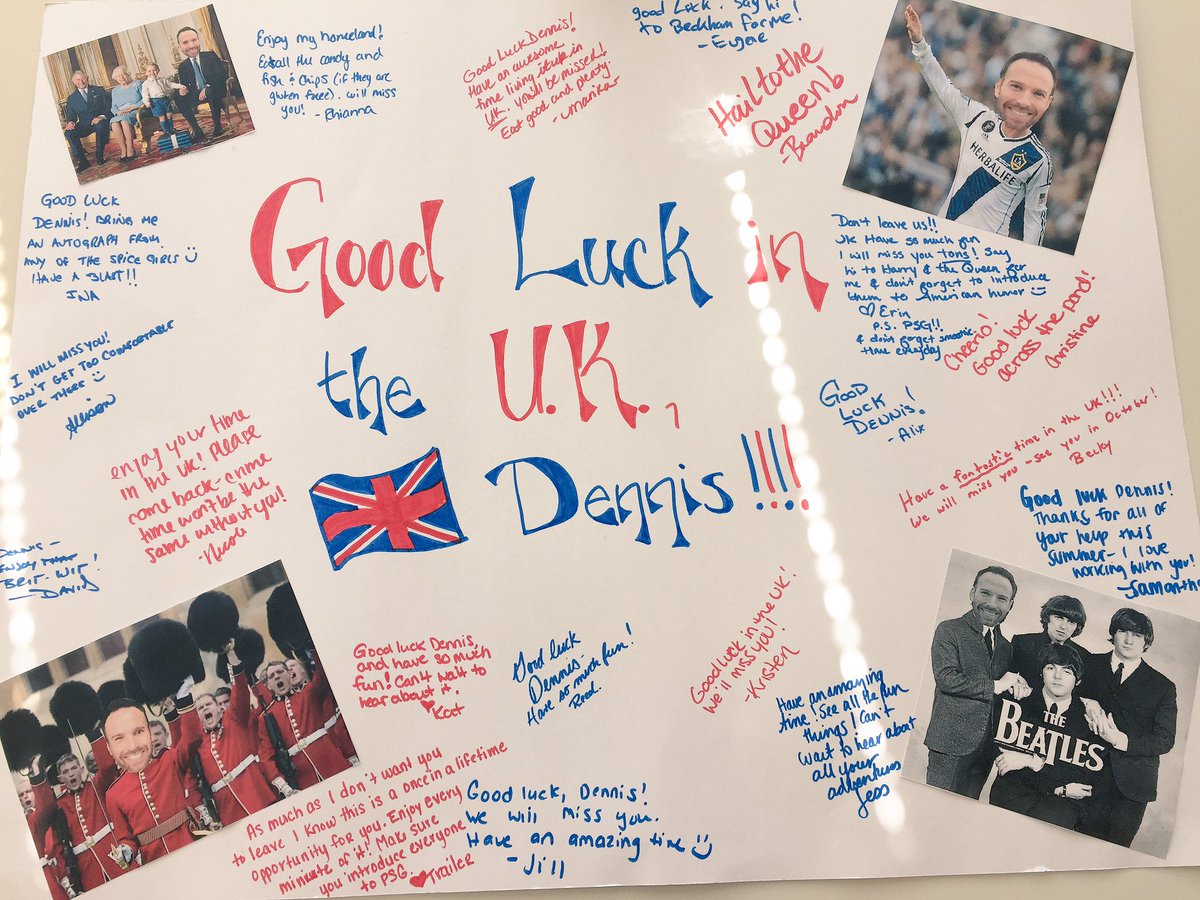 Enjoy my homeland!
Eat all the candy and
fish & chips (if they are
gluten free). will miss
you! - Rhianna
Good Luck Dennis!
Have an awesome
time living it up in
UK. you'll be missed!
Eat good and plenty
-Marika-
good Luck. Say hi
to Beckham for me!
- Eugene
Hail to the
Queen b
- Brandon
HERBALIFE
GOOD LUCK
DENNIS! BRING ME
AN AUTOGRAPH FROM
ANY OF THE SPICE GIRLS
HAVE A BLAST!!
INA
Good Luck in
the U.K.,
Dennis!!!!
Don't leave us!!
JK Have so much fun
I will miss you tons! Say
hi to Harry & the Queen for
me & don't forget to introduce
them to American humor
♡ Erin
P.S. PSG!!
& don't forget smoothie
time everyday
Cheerio!
Good luck
across the pond!
Christine
I WILL MISS YOU!
DON'T GET TOO COMFORTABLE
OVER THERE
Allison
GOOD
LUCK
DENNIS!
- Alix
enjoy your time
in the UK! Please
come back - crime
time won't be the
same without you!
- Nicole
Have a fantastic time in the UK!!!
We will miss you - see you in October!
Becky
Good luck Dennis!
Thanks for all of
your help this
summer - I love
working with you!
- Samantha
DENNIS -
ENJOY THAT
BRIT-WIT!
- DAVID
Good luck Dennis,
and have so much
fun! Can't wait to
hear about it.
♥Kat
Good luck
Dennis -
Have so much fun!
Good luck in the UK!
We'll miss you!
- Kristen
Have an amazing
time! See all the fun
things! I can't
wait to hear about
all your
adventures
Jess
THE
BEATLES
As much as I don't want you
to leave I know this is a once in a lifetime
opportunity for you. Enjoy every
minute of it! Make sure
you introduce everyone
to PSG. ♥Trailer
Good luck, Dennis!
We will miss you.
Have an amazing time
- Jill